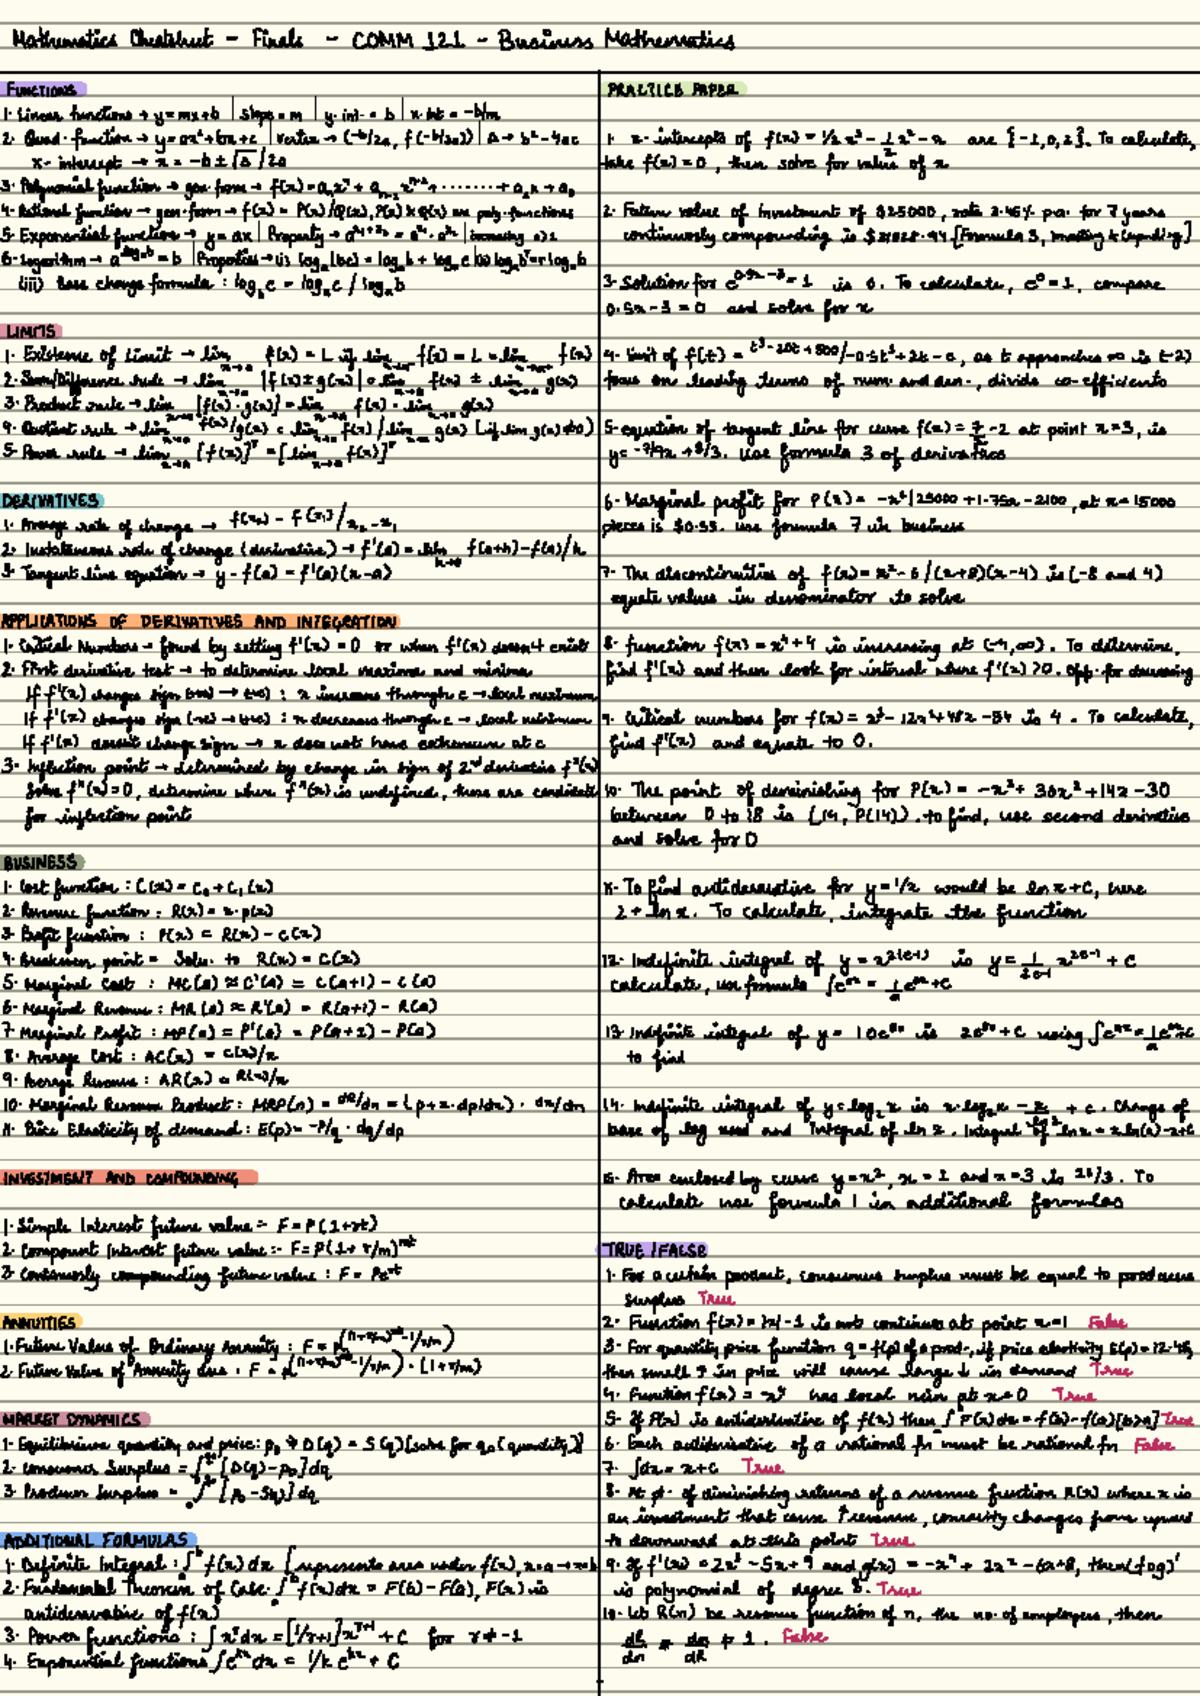 Mathematics Cheatsheet - Finals - COMM 121 - Business Mathematics
FUNCTIONS
1. Linear functions → y=mx+b | slope = m | y. int. = b | x. int = -b/m
2. Quad. function → y=ax²+bx+c | vertex → (-b/2a, f(-b/2a)) | Δ → b²-4ac
x- intercept → x = -b ± √Δ /2a
3. Polynomial function → gen form → f(x)=aₙxⁿ + aₙ₋₁xⁿ⁻¹+ ········ + a₁x + a₀
4. Rational function → gen. form → f(x) = P(x)/Q(x), P(x) & Q(x) are poly. functions
5. Exponential function → y = ax | Property →
6. Logarithm → = b | Properties → (i) log (bc) = log b + log c
(iii) base change formula : log c = log c / log b
LIMITS
1. Existence of Limit → lim f(x) = L if lim f(x) = L = lim f(x)
2. Sum/Difference rule → lim [f(x) ± g(x)] = lim f(x) ± lim g(x)
3. Product rule → lim [f(x) · g(x)] = lim f(x) · lim g(x)
4. Quotient rule → lim f(x)/g(x) = lim f(x) / lim g(x) [if lim g(x)≠0]
5. Power rule → lim [f(x)]ʳ = [lim f(x)]ʳ
DERIVATIVES
1. Average rate of change → f(x₂) - f(x₁) / x₂ - x₁
2. Instantaneous rate of change (derivative) → f'(a) = lim f(a+h)-f(a)/h
3. Tangent line equation → y - f(a) = f'(a)(x-a)
APPLICATIONS OF DERIVATIVES AND INTEGRATION
1. Critical Numbers → found by setting f'(x) = 0 or when f'(x) doesn't exist
2. First derivative test → to determine local maxima and minima
If f'(x) changes sign (+ve) → (-ve) : x increases through c → local maximum
If f'(x) changes sign (-ve) → (+ve) : x decreases through c → local minimum
If f'(x) doesn't change sign → x does not have extremum at c
3. Inflection point → determined by change in sign of 2nd derivative f''(x)
Solve f''(x)=0, determine where f''(x) is undefined, these are candidate
for inflection point
BUSINESS
1. Cost function : C(x) = C₀ + C₁(x)
2. Revenue function : R(x) = x·p(x)
3. Profit function : P(x) = R(x) - C(x)
4. Breakeven point = Soln. to R(x) = C(x)
5. Marginal Cost : MC(a) ≈ C'(a) = C(a+1) - C(a)
6. Marginal Revenue : MR(a) ≈ R'(a) = R(a+1) - R(a)
7. Marginal Profit : MP(a) = P'(a) = P(a+1) - P(a)
8. Average Cost : AC(x) = C(x)/x
9. Average Revenue : AR(x) = R(x)/x
10. Marginal Revenue Product : MRP(n) = dR/dn = (p+x·dp/dx) · dx/dn
11. Price Elasticity of demand : E(p) = -p/q · dq/dp
INVESTMENT AND COMPOUNDING
1. Simple Interest future value :- F = P(1+rt)
2. Compound Interest future value :- F = P(1+ r/m)ᵐᵗ
3. Continously compounding future value : F = Peʳᵗ
ANNUITIES
1. Future Value of Ordinary Annuity : F =
2. Future Value of Annuity due : F =
MARKET DYNAMICS
1. Equilibrium quantity and price: D(q) = S(q) [solve for q₀ (quantity)]
2. Consumer Surplus = ∫ [D(q)-p₀] dq
3. Producer Surplus = ∫ [p₀ - S(q)] dq
ADDITIONAL FORMULAS
1. Definite Integral : ∫ f(x) dx represents area under f(x), x=a → x=b
2. Fundamental Theorem of Calc. ∫ f(x)dx = F(b) - F(a), F(x) is
antideravative of f(x)
3. Power functions : ∫ xʳ dx = [1/r+1] xʳ⁺¹ + C for r ≠ -1
4. Exponential functions ∫ eᵏˣ dx = 1/k eᵏˣ + C
PRACTICE PAPER
1. x- intercepts of f(x) = 1/2 x³ - 1/2 x² - x are {-1,0,2}. To calculate,
take f(x) = 0, then solve for value of x
2. Future value of investment of $25000, rate p.a. for 7 years
continously compounding is [Formula 3, Investing & Compounding]
3. Solution for = 1 is 6. To calculate, e⁰ = 1, compare
0.5x-3 = 0 and solve for x
4. Limit of f(t) = as t approaches ∞ is (-2)
focus on leading terms of num. and den., divide co-efficients
5. equation of tangent line for curve f(x) = at point x=3, is
Use formula 3 of derivatives
6. Marginal profit for P(x) = -x²/25000 + 1.75x - 2100, at x = 15000
pieces is $0.55. Use formula 7 in business
7. The discontinuities of f(x) = x²- 6 /(x+8)(x-4) is (-8 and 4)
equate values in denominator to solve
8. function f(x) = + 4 is increasing at. To determine,
find f'(x) and then look for interval where f'(x) >0. Opp. for decreasing
9. Critical numbers for f(x) = x³- 12x²+48x -54 is 4. To calculate,
find f'(x) and equate to 0.
10. The point of deminishing for P(x) = -x³ + 30x² + 14x -30
between 0 to 18 is. to find, use second derivative
and solve for 0
11. To find antiderivative for would be ln x + C, here
2 + ln x. To calculate, integrate the function
12. Indefinite integral of y = is y = + C
calculate, use formula
13. Indefinite integral of y = is + C using
to find
14. Indefinite integral of y = log₂ x is x·log₂ x - + C. Change of
base of log used and Integral of ln x. Integral of ln x = x ln(x) - x + C
15. Area enclosed by curve y = x², x = 1 and x = 3 is 26/3. To
calculate use formula 1 in additional formulas
TRUE /FALSE
1. For a certain product, consumers surplus must be equal to producers
surplus True
2. Function f(x) = |x| - 1 is not continous at point x=1 False
3. For quantity price function q = f(p) of a prod., if price elasticity E(p) =
then small ↑ in price will cause large ↓ in demand True
4. Function f(x) = has local min at x = 0 True
5. If F(x) is antiderivative of f(x) then [b>a] True
6. Each antiderivative of a rational fn must be rational fn False
7. ∫dx = x+C True
8. At pt. of diminishing returns of a revenue function R(x) where x is
an investment that cause ↑ revenue, concavity changes from upward
to downward at this point True
9. If f'(x) = and g(x) = then (fog)'
is polynomial of degree 8. True
10. Let R(n) be revenue function of n, the no. of employees, then
False